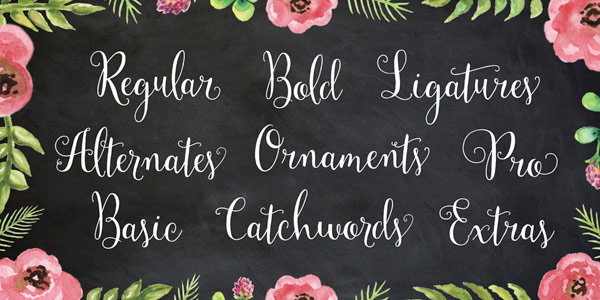 Regular Bold Ligatures
Alternates Ornaments Pro
Basic Catchwords Extras